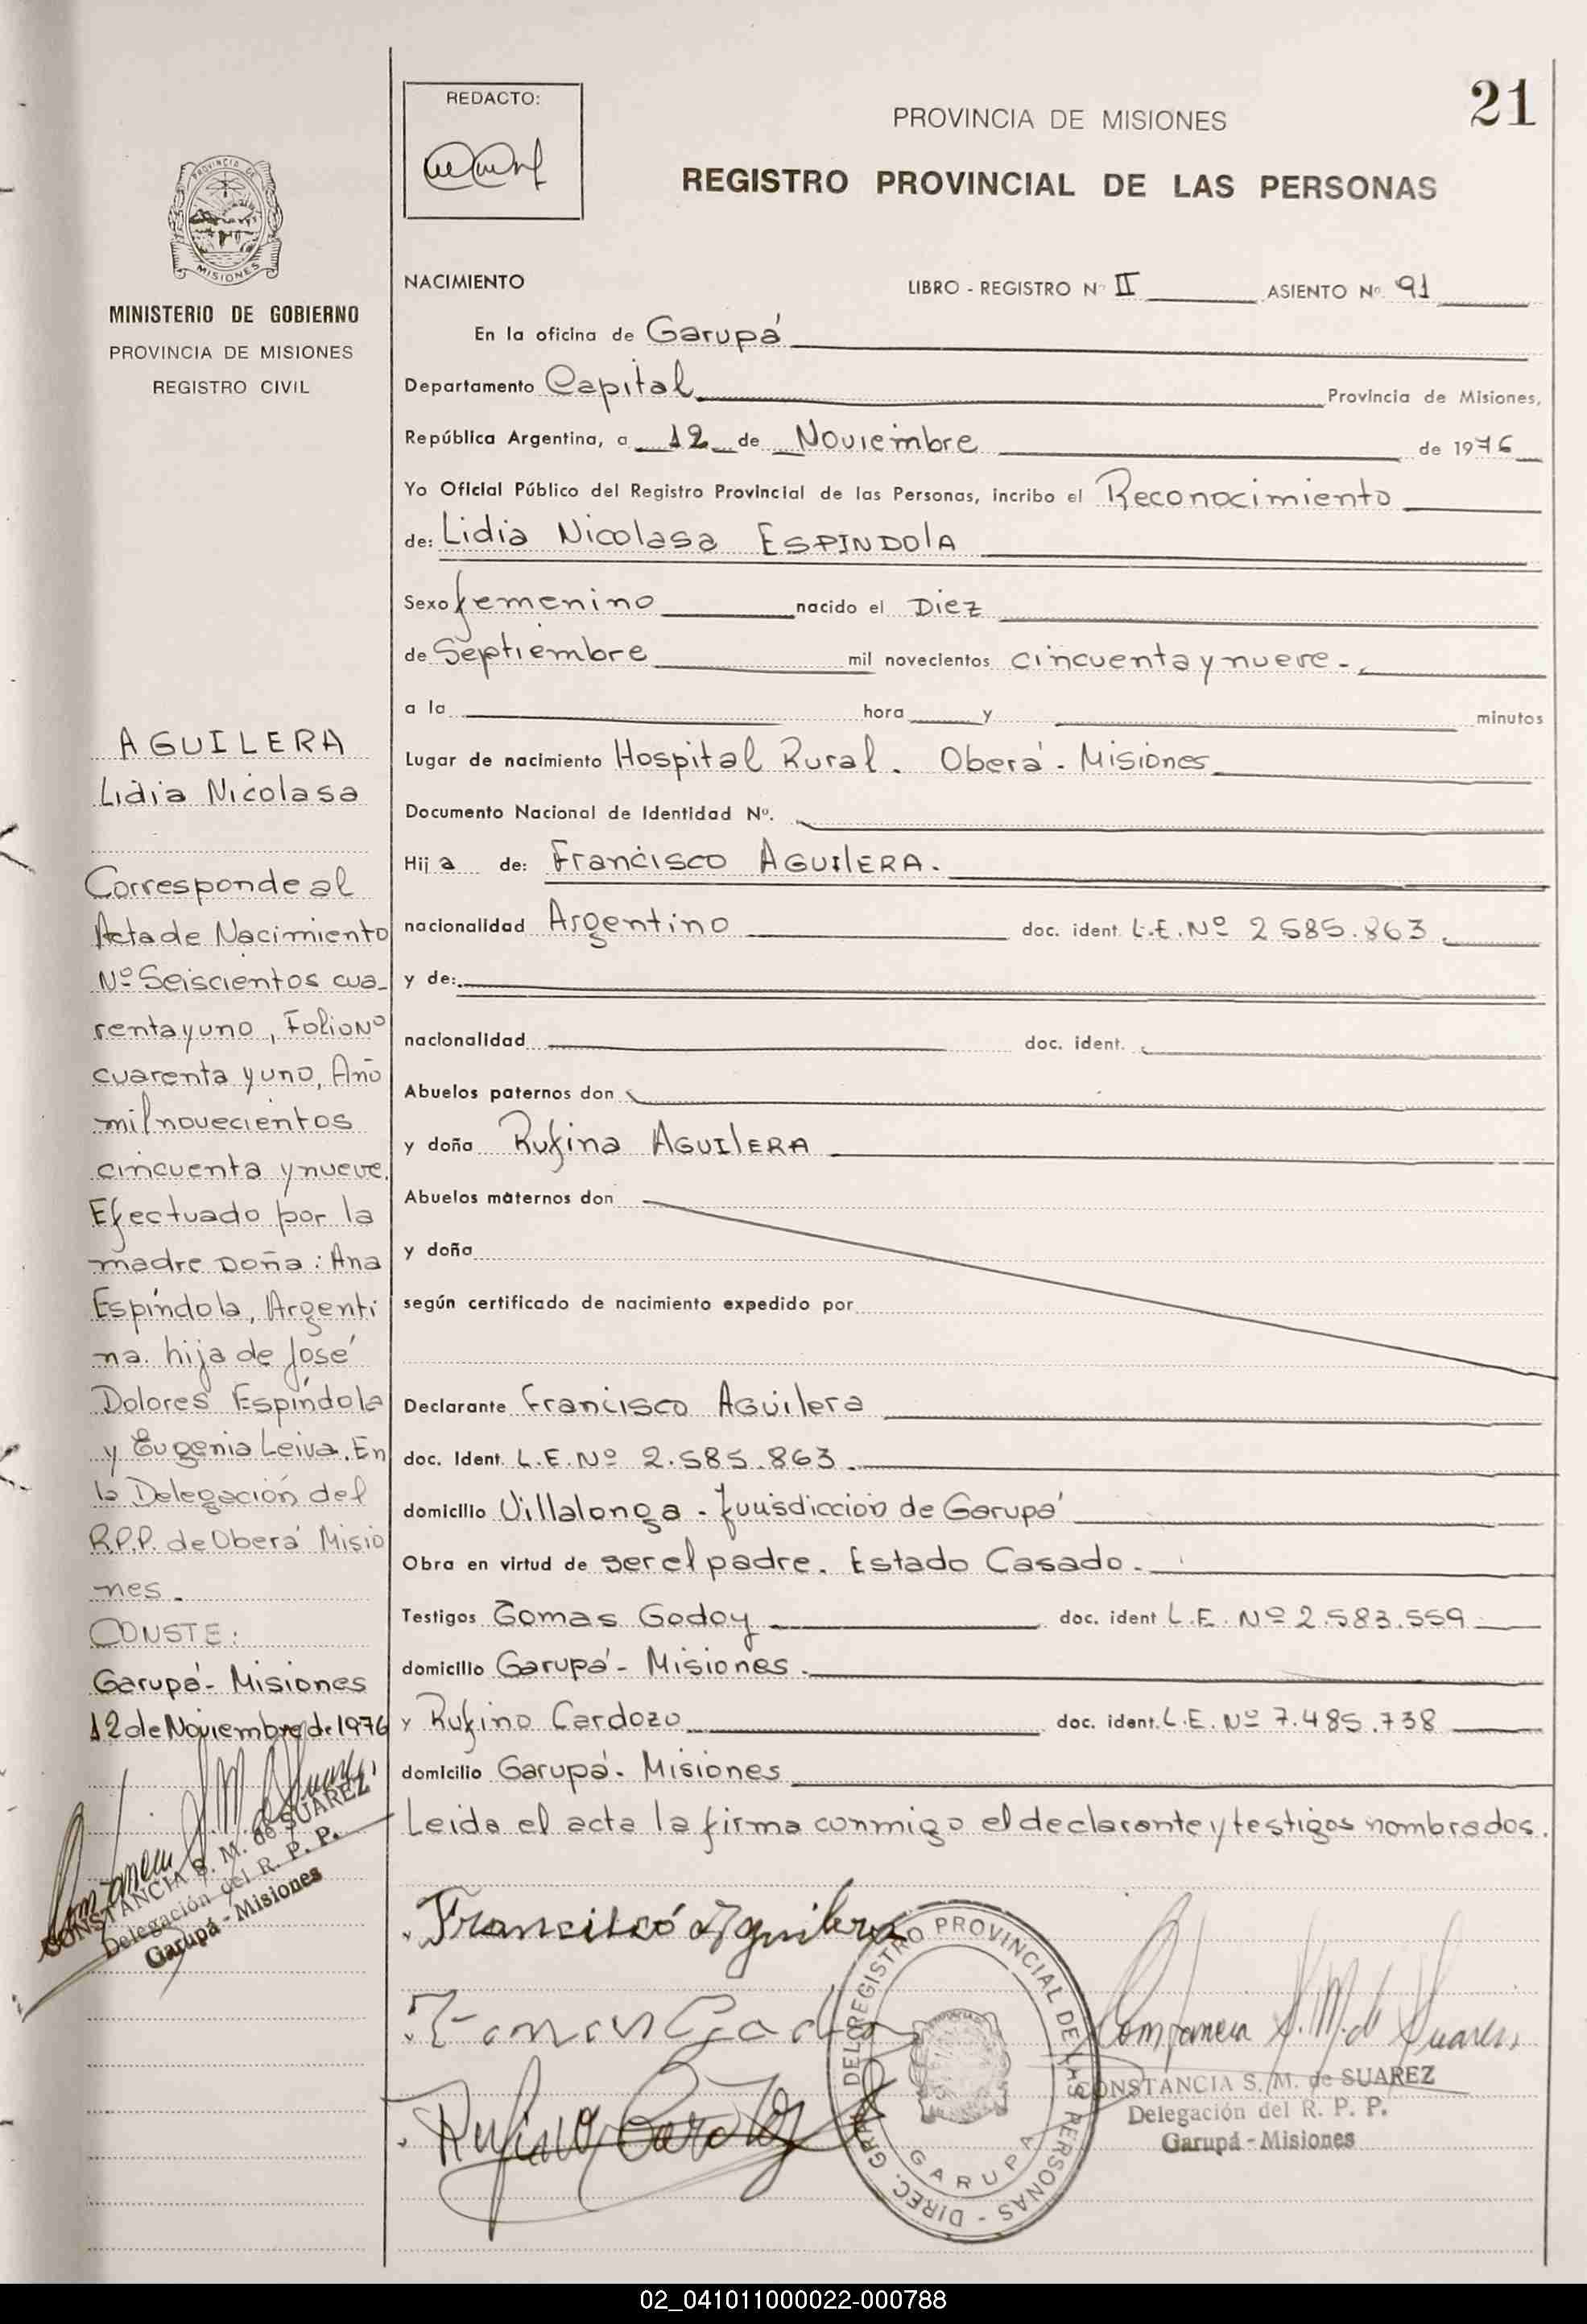 21
REDACTO:
PROVINCIA DE MISIONES
REGISTRO PROVINCIAL DE LAS PERSONAS
PROVINCIA DE
MISIONES
MINISTERIO DE GOBIERNO
PROVINCIA DE MISIONES
REGISTRO CIVIL
NACIMIENTO
LIBRO - REGISTRO Nº II ASIENTO Nº 91
En la oficina de Garupá
Departamento Capital Provincia de Misiones,
República Argentina, a 12 de Noviembre de 1976
Yo Oficial Público del Registro Provincial de las Personas, incribo el Reconocimiento
de: Lidia Nicolasa ESPINDOLA
Sexo femenino nacido el Diez
de Septiembre mil novecientos cincuenta y nueve.-
a la hora y minutos
Lugar de nacimiento Hospital Rural. Oberá - Misiones
Documento Nacional de Identidad Nº.
Hija de: Francisco AGUILERA.
nacionalidad Argentino doc. ident. L.E. Nº 2.585.863.
y de:
nacionalidad doc. ident.
Abuelos paternos don
y doña Rufina AGUILERA
Abuelos maternos don
y doña
según certificado de nacimiento expedido por
Declarante Francisco Aguilera
doc. Ident. L.E. Nº 2.585.863.
domicilio Villalonga - Jurisdicción de Garupá
Obra en virtud de ser el padre. Estado Casado.
Testigos Tomas Godoy doc. ident L.E. Nº 2.583.559
domicilio Garupá - Misiones.
y Rufino Cardozo doc. ident. L.E. Nº 7.485.738
domicilio Garupá - Misiones
Leida el acta la firma conmigo el declarante y testigos nombrados.
AGUILERA
Lidia Nicolasa
Corresponde al
Acta de Nacimiento
Nº Seiscientos cua-
renta y uno, Folio Nº
cuarenta y uno, Año
mil novecientos
cincuenta y nueve.
Efectuado por la
madre Doña: Ana
Espíndola, Argenti
na. hija de José
Dolores Espíndola
y Eugenia Leiva. En
la Delegación del
R.P.P. de Oberá Misio
nes.
CONSTE:
Garupá - Misiones
12 de Noviembre de 1976
Constancia S. M. de Suarez
CONSTANCIA S. M. de SUAREZ
Delegación del R. P. P.
Garupá - Misiones
Francisco Aguilera
Tomas Godoy
Rufino Cardozo
DIREC. GRAL. DEL REGISTRO PROVINCIAL DE LAS PERSONAS -
GARUPA
Constancia S. M. de Suarez
CONSTANCIA S. M. de SUAREZ
Delegación del R. P. P.
Garupá - Misiones
02_041011000022-000788